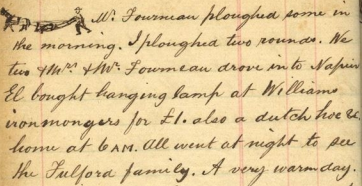 Mr. Fourneau ploughed some in
the morning. I ploughed two rounds. We
two & Mrs. & Mr. Fourneau drove in to Napier
El. bought hanging lamp at Williams
ironmongers for £1. also a dutch hoe &.
home at 6 AM. All went at night to see
the Fulford family. A very warm day.